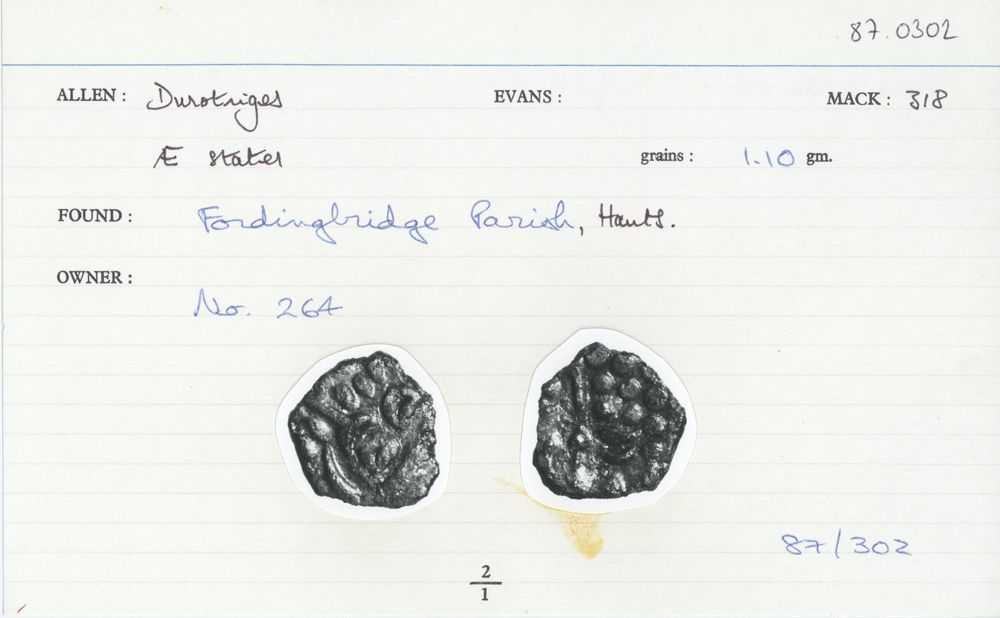 87.0302
ALLEN : Durotriges EVANS : MACK : 318
Æ stater grains : 1.10 gm.
FOUND : Fordingbridge Parish, Hants.
OWNER :
No. 264
87/302
2
1